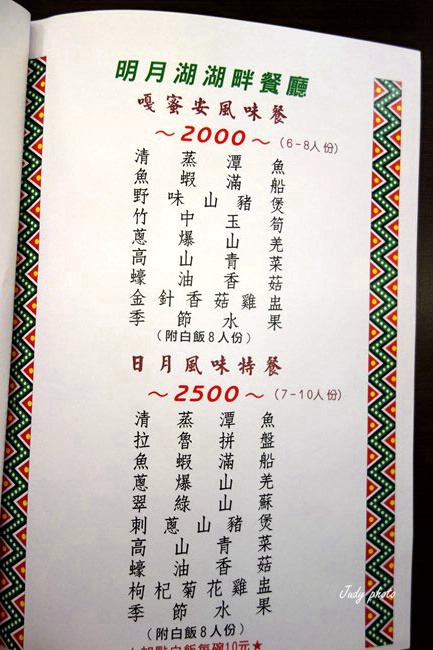 明月湖湖畔餐廳
嘎蜜安風味餐
～2000～（6-8人份）
清蒸潭魚
魚蝦滿船
野味山豬煲
竹中玉筍
蔥爆山羌
高山青菜
蠔油香菇
金針香菇雞盅
季節水果
（附白飯8人份）
日月風味特餐
～2500～（7-10人份）
清蒸潭魚
拉魯拼盤
魚蝦滿船
蔥爆山羌
翠綠山蘇
刺蔥山豬煲
高山青菜
蠔油香菇
枸杞菊花雞盅
季節水果
（附白飯8人份）
加點白飯每碗10元★
Judy photo